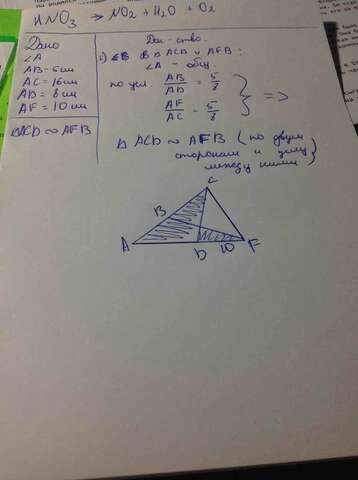 HNO₃ → NO₂ + H₂O + O₂
Дано
∠A
AB - 5см
AC = 16см
AD = 8см
AF = 10см
ACD ∼ AFB
Док-ство.
1) В Δ ACD и AFB:
∠A - общ.
по усл. AB/AD = 5/8
AF/AC = 5/8
} =>
Δ ACD ∼ AFB (по двум
сторонам и углу
между ними)
C
B
A
D
10
F